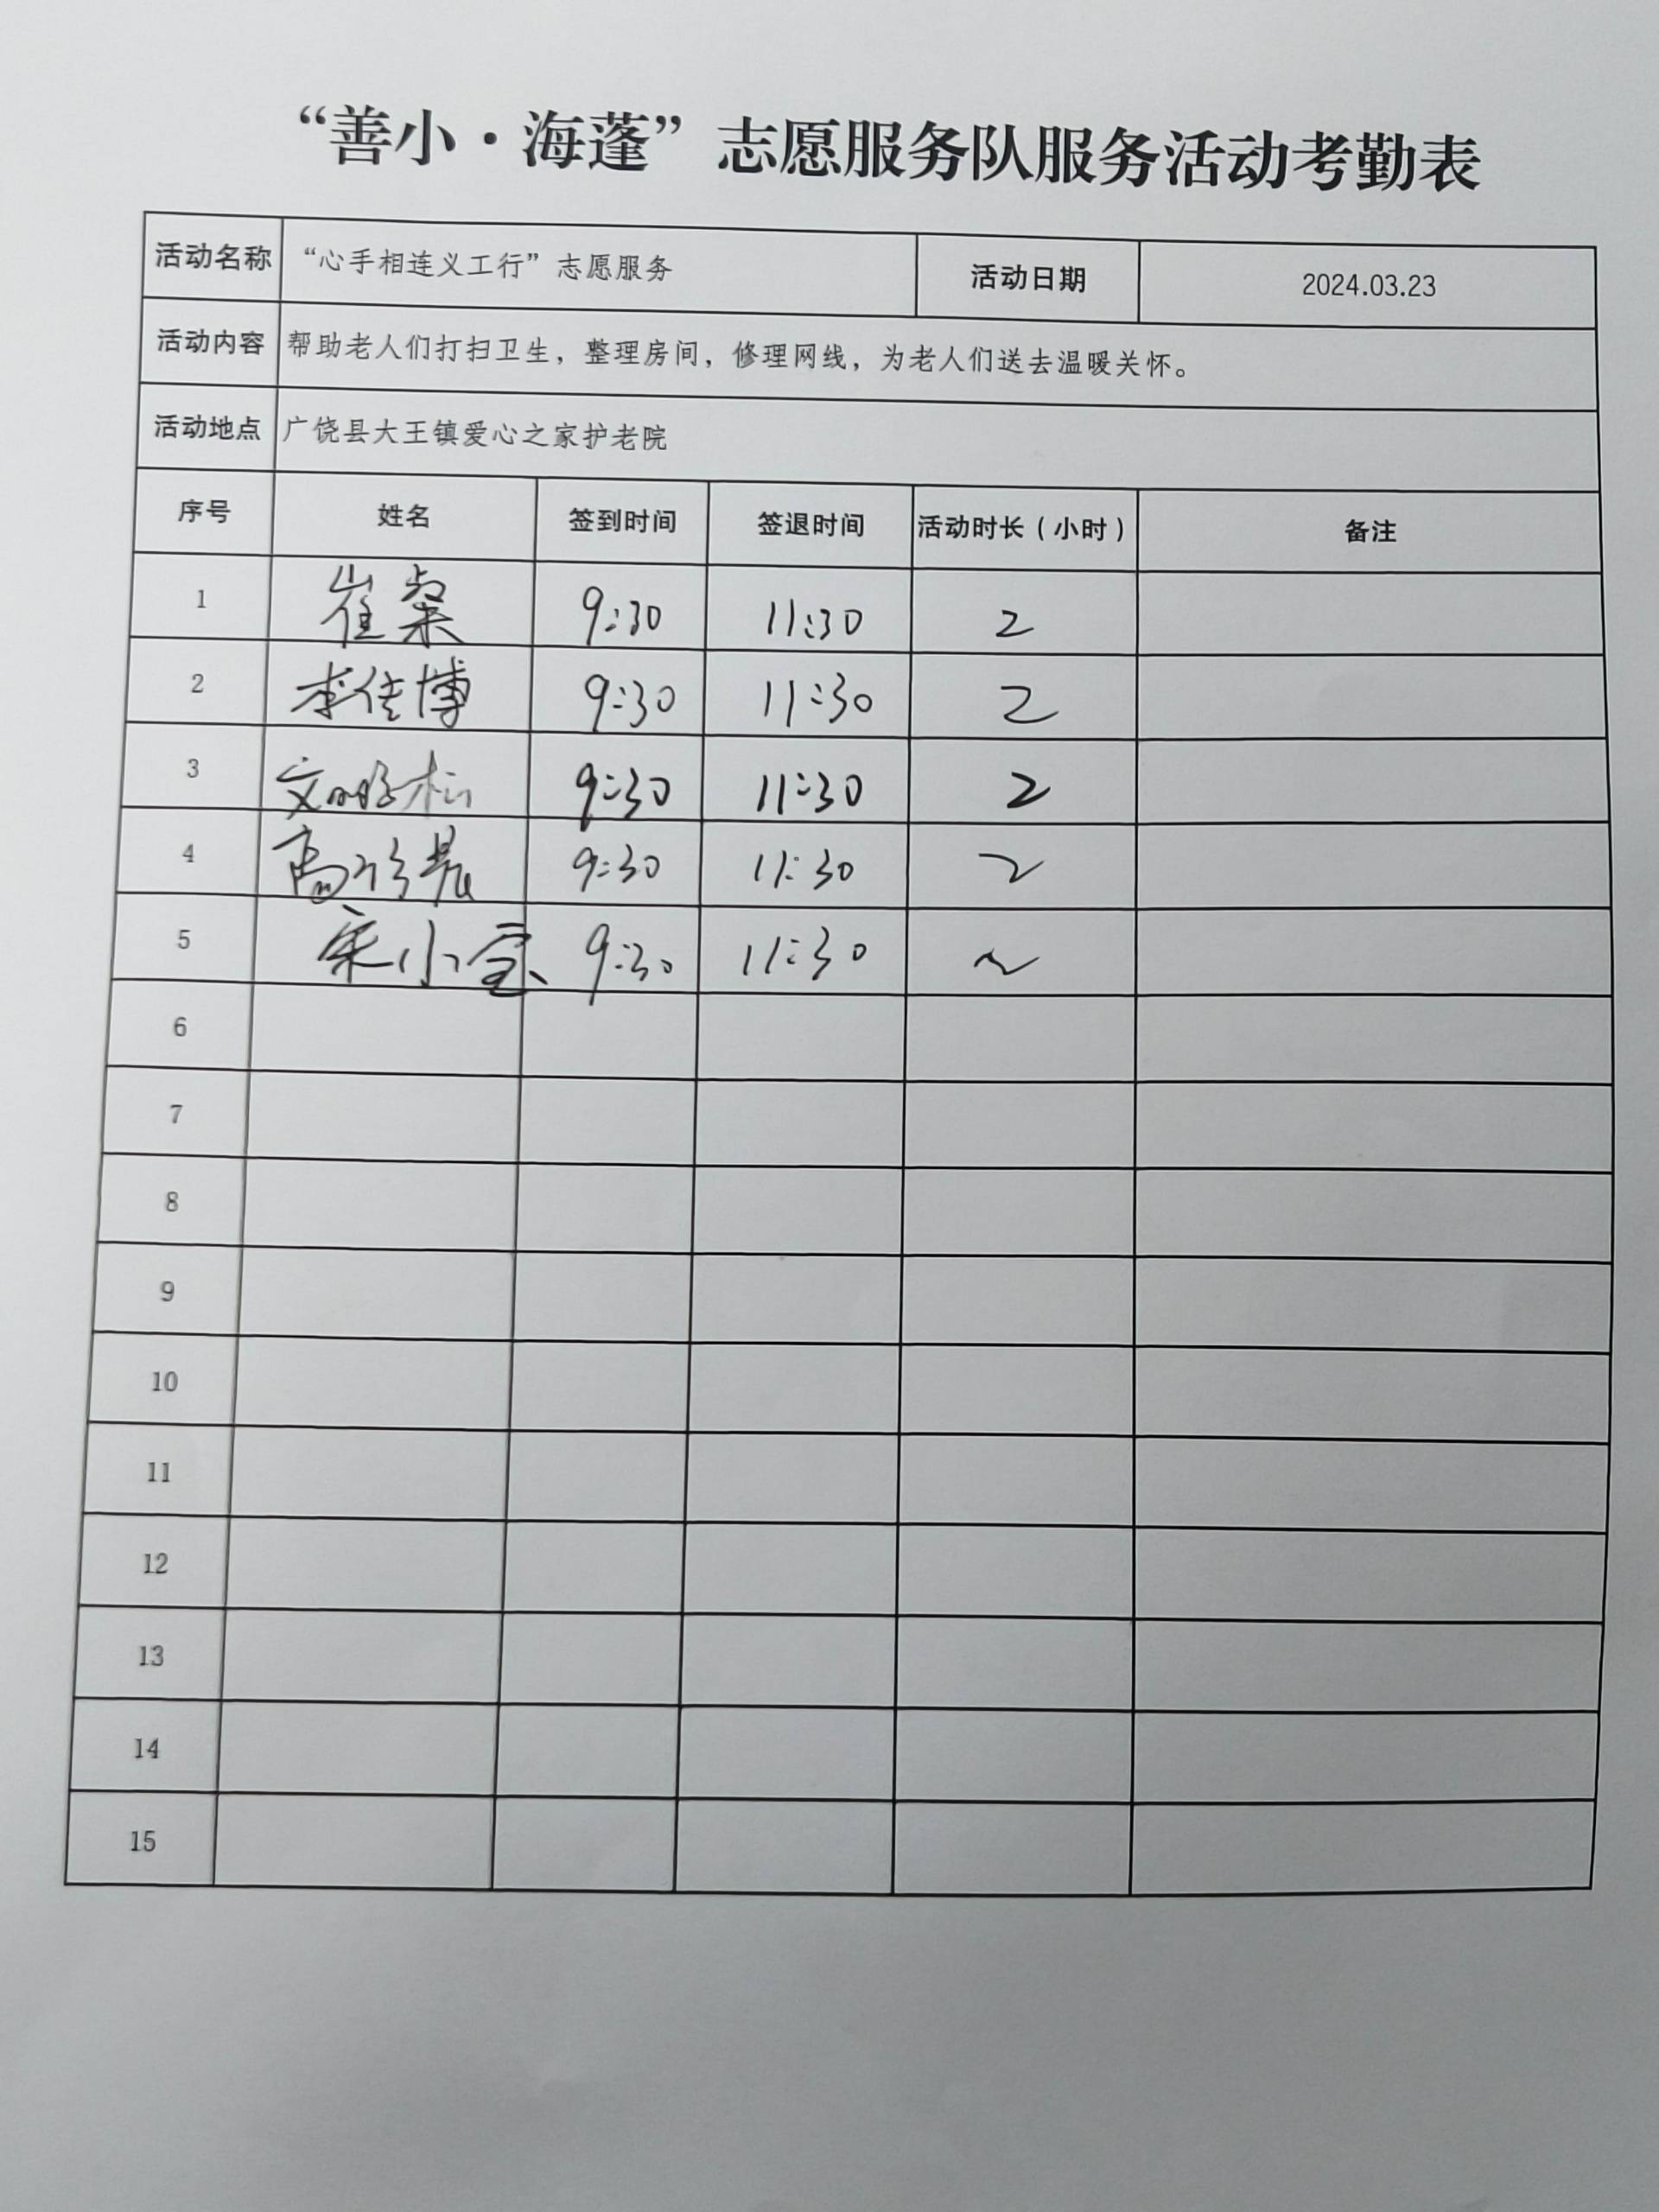 “善小·海蓬”志愿服务队服务活动考勤表
活动名称 “心手相连义工行”志愿服务 活动日期 2024.03.23
活动内容 帮助老人们打扫卫生，整理房间，修理网线，为老人们送去温暖关怀。
活动地点 广饶县大王镇爱心之家护老院
序号 姓名 签到时间 签退时间 活动时长（小时） 备注
1 崔粲 9:30 11:30 2
2 李佳博 9:30 11:30 2
3 9:30 11:30 2
4 9:30 11:30 2
5 宋小宝 9:30 11:30 2
6
7
8
9
10
11
12
13
14
15